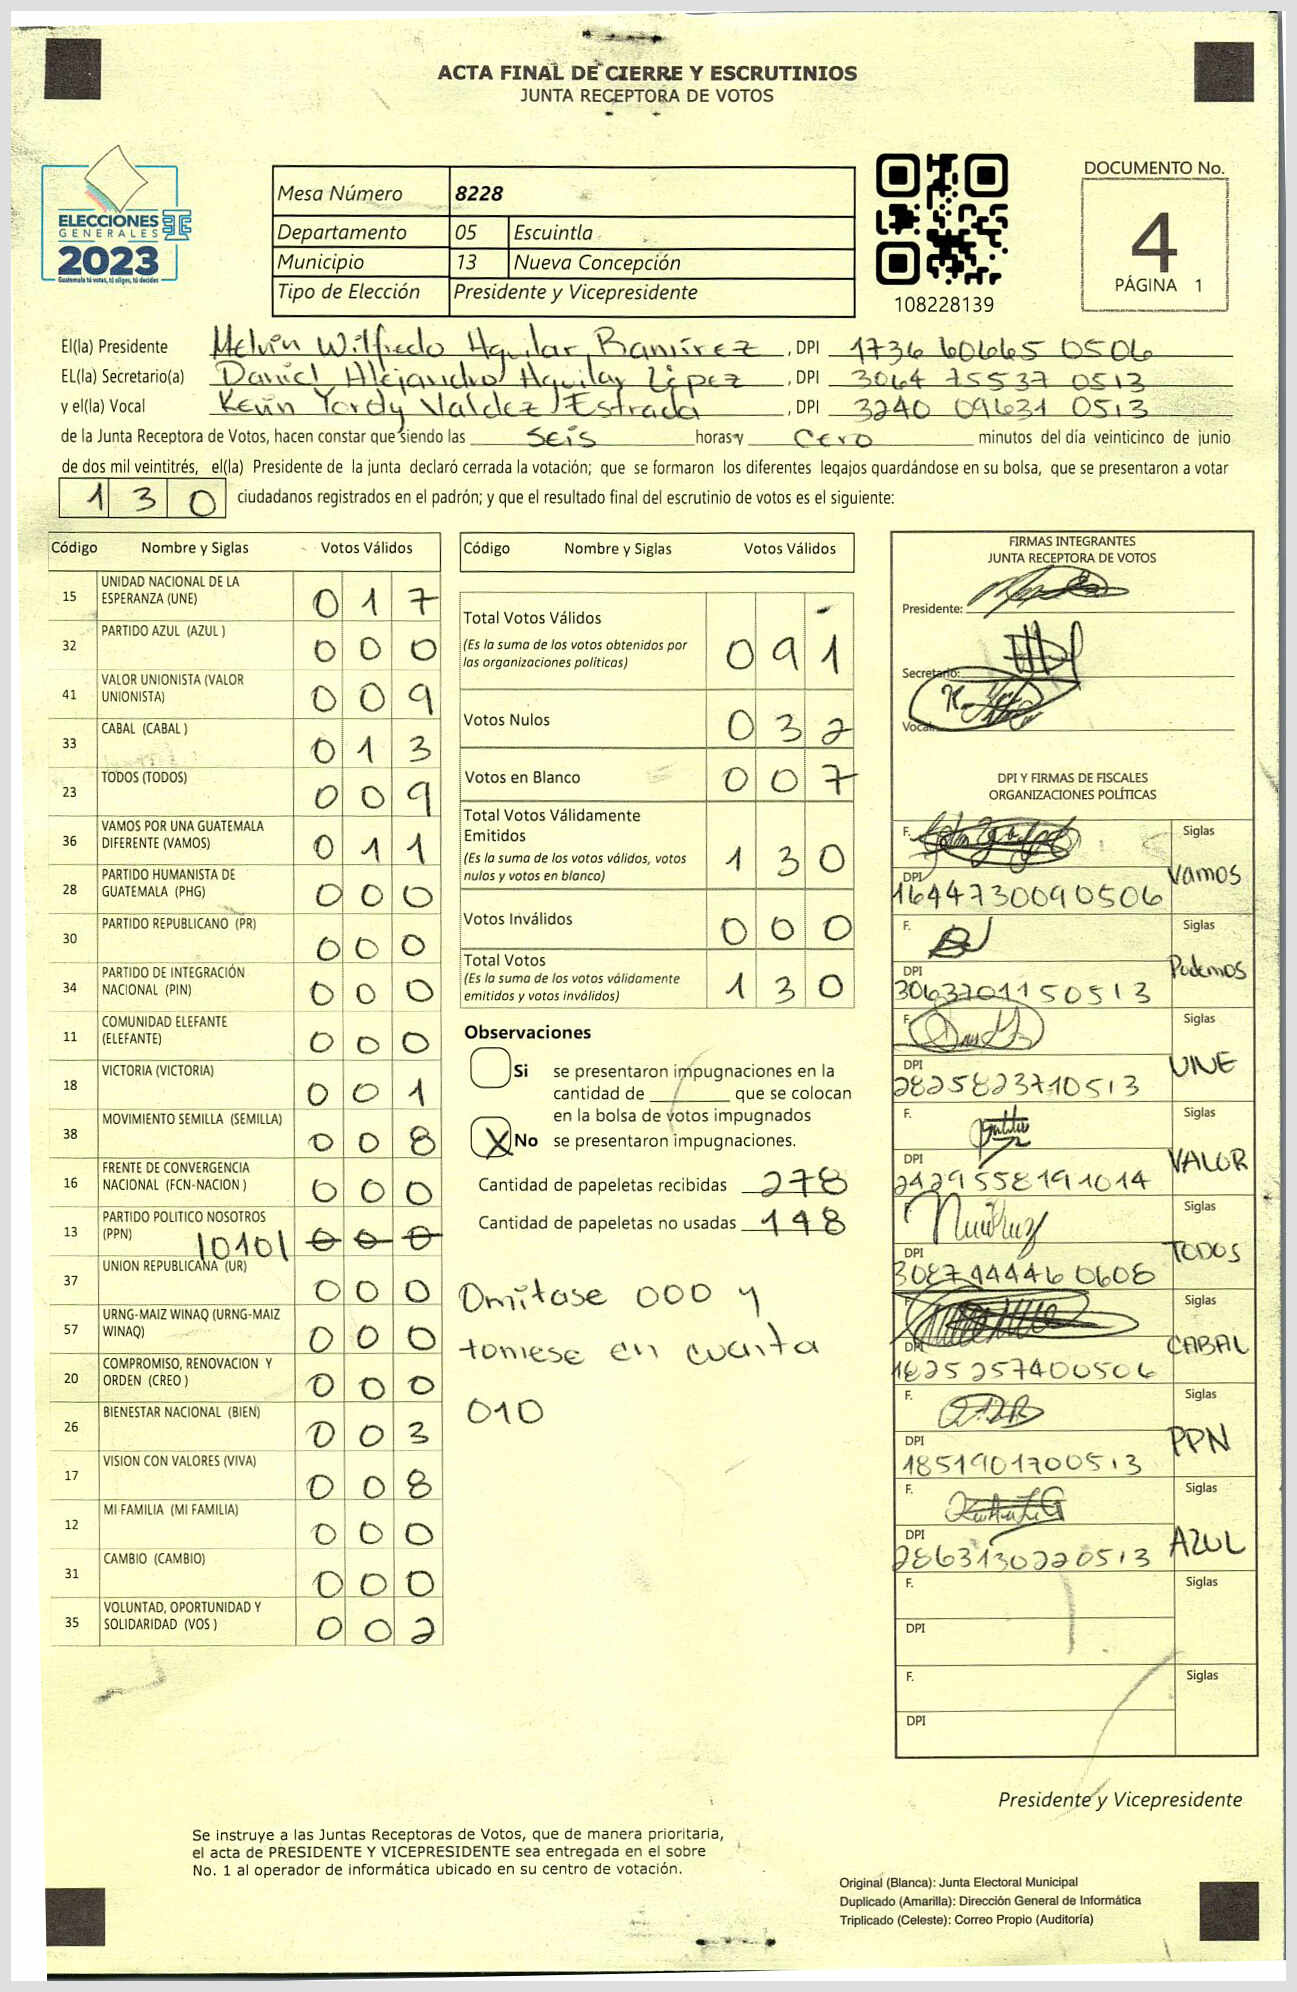 ACTA FINAL DE CIERRE Y ESCRUTINIOS
JUNTA RECEPTORA DE VOTOS
ELECCIONES
GENERALES
2023
Guatemala tú votas, tú eliges, tú decides
Mesa Número 8228
Departamento 05 Escuintla
Municipio 13 Nueva Concepción
Tipo de Elección Presidente y Vicepresidente
108228139
DOCUMENTO No.
4
PÁGINA 1
El(la) Presidente Melvin Wilfredo Aguilar Ramírez, DPI 1736 60665 0506
EL(la) Secretario(a) Daniel Alejandro Aguilar López, DPI 3064 75537 0513
y el(la) Vocal Kevin Yordy Valdez Estrada, DPI 3240 09631 0513
de la Junta Receptora de Votos, hacen constar que siendo las seis horas y cero minutos del día veinticinco de junio
de dos mil veintitrés, el(la) Presidente de la junta declaró cerrada la votación; que se formaron los diferentes legajos quardándose en su bolsa, que se presentaron a votar
130 ciudadanos registrados en el padrón; y que el resultado final del escrutinio de votos es el siguiente:
Código Nombre y Siglas Votos Válidos
15 UNIDAD NACIONAL DE LA ESPERANZA (UNE) 017
32 PARTIDO AZUL (AZUL ) 000
41 VALOR UNIONISTA (VALOR UNIONISTA) 009
33 CABAL (CABAL ) 013
23 TODOS (TODOS) 009
36 VAMOS POR UNA GUATEMALA DIFERENTE (VAMOS) 011
28 PARTIDO HUMANISTA DE GUATEMALA (PHG) 000
30 PARTIDO REPUBLICANO (PR) 000
34 PARTIDO DE INTEGRACIÓN NACIONAL (PIN) 000
11 COMUNIDAD ELEFANTE (ELEFANTE) 000
18 VICTORIA (VICTORIA) 001
38 MOVIMIENTO SEMILLA (SEMILLA) 008
16 FRENTE DE CONVERGENCIA NACIONAL (FCN-NACION ) 000
13 PARTIDO POLITICO NOSOTROS (PPN) |0|0| 000
37 UNION REPUBLICANA (UR) 000
57 URNG-MAIZ WINAQ (URNG-MAIZ WINAQ) 000
20 COMPROMISO, RENOVACION Y ORDEN (CREO ) 000
26 BIENESTAR NACIONAL (BIEN) 003
17 VISION CON VALORES (VIVA) 008
12 MI FAMILIA (MI FAMILIA) 000
31 CAMBIO (CAMBIO) 000
35 VOLUNTAD, OPORTUNIDAD Y SOLIDARIDAD (VOS ) 002
Código Nombre y Siglas Votos Válidos
Total Votos Válidos 091
(Es la suma de los votos obtenidos por
las organizaciones políticas)
Votos Nulos 032
Votos en Blanco 007
Total Votos Válidamente
Emitidos 130
(Es la suma de los votos válidos, votos
nulos y votos en blanco)
Votos Inválidos 000
Total Votos 130
(Es la suma de los votos válidamente
emitidos y votos inválidos)
Observaciones
Si se presentaron impugnaciones en la
cantidad de ________ que se colocan
en la bolsa de votos impugnados
X No se presentaron impugnaciones.
Cantidad de papeletas recibidas 278
Cantidad de papeletas no usadas 148
Omitase 000 y
tomese en cuenta
010
FIRMAS INTEGRANTES
JUNTA RECEPTORA DE VOTOS
Presidente:
Secretario:
Vocal:
DPI Y FIRMAS DE FISCALES
ORGANIZACIONES POLÍTICAS
F. Siglas
DPI 1644730090506 Vamos
F. Siglas
DPI 3063701150513 Podemos
F. Siglas
DPI 2825823710513 UNE
F. Siglas
DPI 2429558191014 VALOR
F. Siglas
DPI 3087444460608 TODOS
F. Siglas
DPI 1825257400506 CABAL
F. Siglas
DPI 1851901700513 PPN
F. Siglas
DPI 2863130220513 AZUL
F. Siglas
DPI
F. Siglas
DPI
Presidente y Vicepresidente
Se instruye a las Juntas Receptoras de Votos, que de manera prioritaria,
el acta de PRESIDENTE Y VICEPRESIDENTE sea entregada en el sobre
No. 1 al operador de informática ubicado en su centro de votación.
Original (Blanca): Junta Electoral Municipal
Duplicado (Amarilla): Dirección General de Informática
Triplicado (Celeste): Correo Propio (Auditoría)